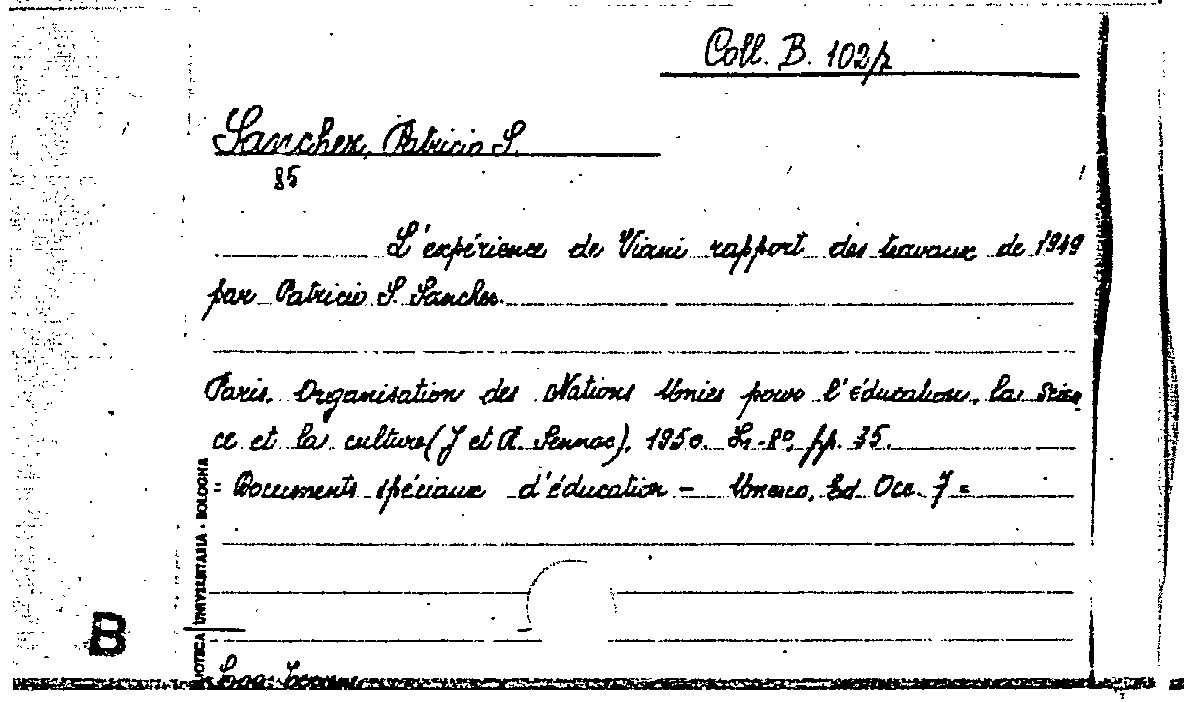 Coll. B. 102/7
Sanchez, Patricio S.
85
L'expérience de Viani rapport des travaux de 1949
par Patricio S. Sanchez.
Paris, Organisation des Nations Unies pour l'éducation, la Scien
ce et la culture (J et R. Sennac), 1950. In-8°, pp. 35.
= Documents spéciaux d'éducation – Unesco, Ed. Occ. 7 =
BIBLIOTECA UNIVERSITARIA - BOLOGNA
B